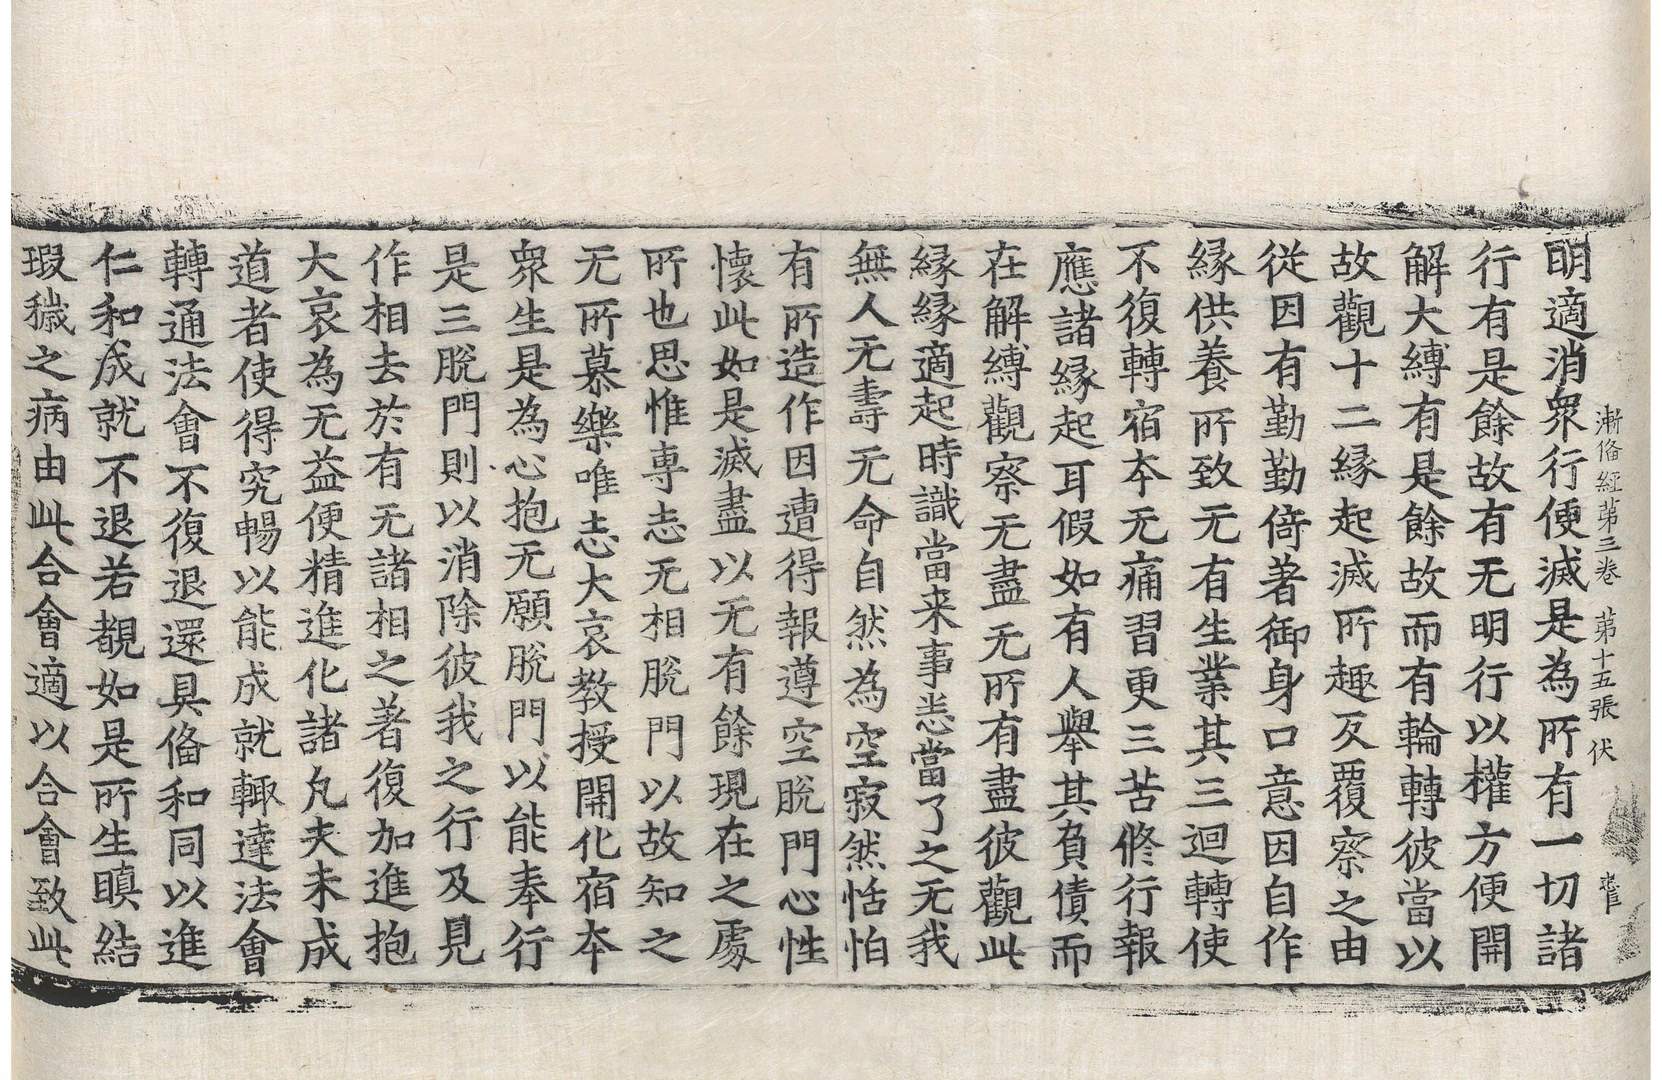 漸俻經第三卷 第十五張 伏
明適消衆行便滅是為所有一切諸
行有是餘故有无明行以權方便開
解大縛有是餘故而有輪轉彼當以
故觀十二縁起滅所趣反覆察之由
従因有勤勤倚著御身口意因自作
縁供養所致无有生業其三迴轉使
不復轉宿夲无痛習更三苦修行報
應諸縁起耳假如有人舉其負債而
在解縛觀察无盡无所有盡彼觀此
縁縁適起時識當来事悉當了之无我
無人无壽无命自然為空寂然恬怕
有所造作因遭得報遵空脫門心性
懐此如是滅盡以无有餘現在之處
所也思惟専志无相脫門以故知之
无所慕樂唯志大哀教授開化宿夲
衆生是為心抱无願脫門以能奉行
是三脫門則以消除彼我之行及見
作相去於有无諸相之著復加進抱
大哀為无益便精進化諸凡夫未成
道者使得究暢以能成就輙達法會
轉通法會不復退還具俻和同以進
仁和成就不退若覩如是所生瞋結
瑕穢之病由此合會適以合會致此